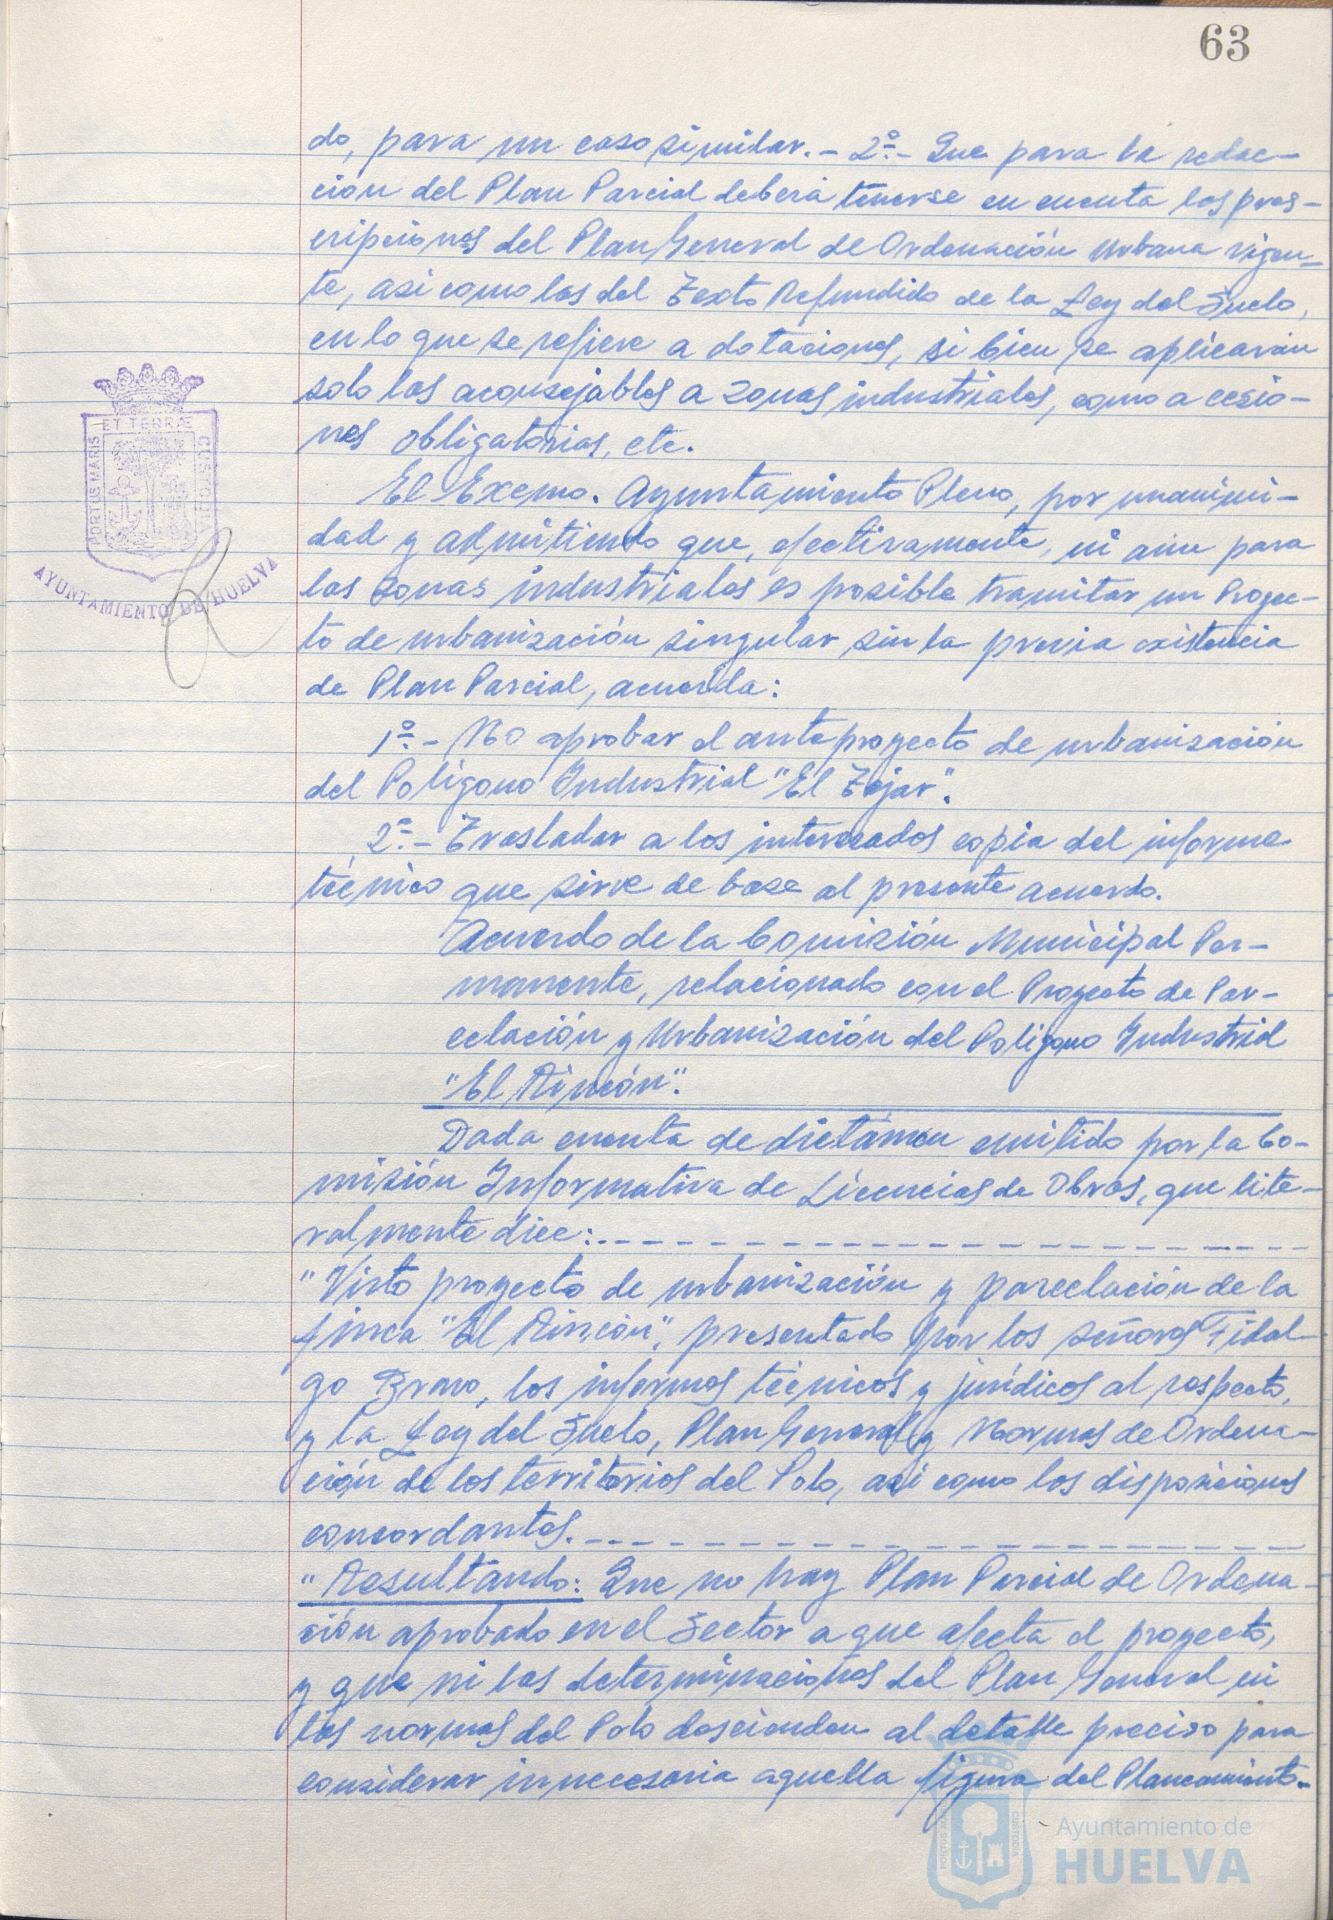 63
do, para un caso similar.- 2º.- Que para la redac-
ción del Plan Parcial deberá tenerse en cuenta las pres-
cripciones del Plan General de Ordenación Urbana vigen-
te, asi como las del Texto Refundido de la Ley del Suelo,
en lo que se refiere a dotaciones, si bien se aplicarán
solo las aconsejables a zonas industriales, como a cesio-
nes obligatorias, etc.
El Excmo. Ayuntamiento Pleno, por unanimi-
dad y admitiendo que, efectivamente, ni aún para
las zonas industriales es posible tramitar un Proyec-
to de urbanización singular sin la previa existencia
de Plan Parcial, acuerda:
1º.- No aprobar el anteproyecto de urbanización
del Polígono Industrial "El Tejar".
2º.- Trasladar a los interesados copia del informe
técnico que sirve de base al presente acuerdo.
Acuerdo de la Comisión Municipal Per-
manente, relacionado con el Proyecto de Par-
celación y Urbanización del Polígono Industrial
"El Rincón".
Dada cuenta de dictámen emitido por la Co-
misión Informativa de Licencias de Obras, que lite-
ralmente dice:
"Visto proyecto de urbanización y parcelación de la
finca "El Rincón", presentado por los señores Fidal-
go Bravo, los informes técnicos y jurídicos al respecto,
y la Ley del Suelo, Plan General y Normas de Ordena-
ción de los territorios del Polo, asi como las disposiciones
concordantes.
"Resultando: Que no hay Plan Parcial de Ordena-
ción aprobado en el Sector a que afecta el proyecto,
y que ni las determinaciones del Plan General ni
las normas del Polo descienden al detalle preciso para
considerar innecesaria aquella figura del Planeamiento.-
PORTUS MARIS ET TERRÆ CUSTODIA
AYUNTAMIENTO DE HUELVA
Ayuntamiento de
HUELVA